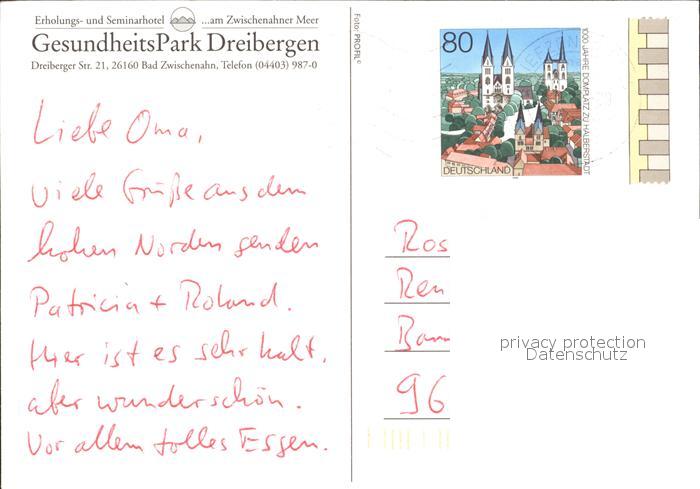 Erholungs- und Seminarhotel ...am Zwischenahner Meer
GesundheitsPark Dreibergen
Dreiberger Str. 21, 26160 Bad Zwischenahn, Telefon (04403) 987-0
Liebe Oma,
viele Grüße aus dem
hohen Norden senden
Patricia + Roland.
Hier ist es sehr kalt,
aber wunderschön.
Vor allem tolles Essen.
Foto: PROFIL
80
DEUTSCHLAND
1000 JAHRE DOMPLATZ ZU HALBERSTADT
Ros
Ren
Bam
96
privacy protection
Datenschutz